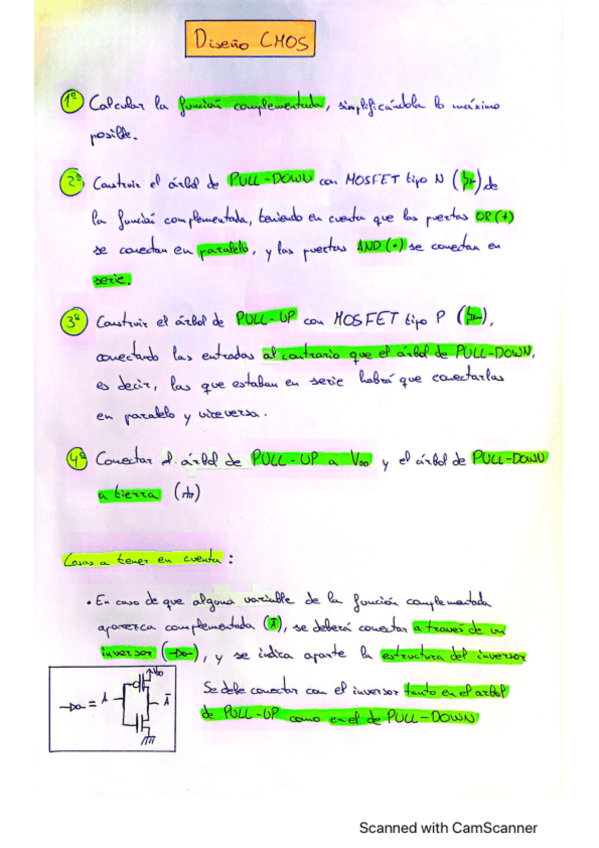 Diseño CMOS
1º Calcular la función complementada, simplificándola lo máximo
posible.
2º Construir el árbol de PULL-DOWN con MOSFET tipo N ( ) de
la función complementada, teniendo en cuenta que las puertas OR (+)
se conectan en paralelo, y las puertas AND (•) se conectan en
serie.
3º Construir el árbol de PULL-UP con MOSFET tipo P ( ),
conectando las entradas al contrario que el árbol de PULL-DOWN,
es decir, las que estaban en serie habrá que conectarlas
en paralelo y viceversa.
4º Conectar el árbol de PULL-UP a VDD y el árbol de PULL-DOWN
a tierra ( )
Cosas a tener en cuenta:
• En caso de que alguna variable de la función complementada
aparezca complementada (Ā), se deberá conectar a través de un
inversor ( ), y se indica aparte la estructura del inversor
Se debe conectar con el inversor tanto en el árbol
de PULL-UP como en el de PULL-DOWN
= A VDD Ā
Scanned with CamScanner